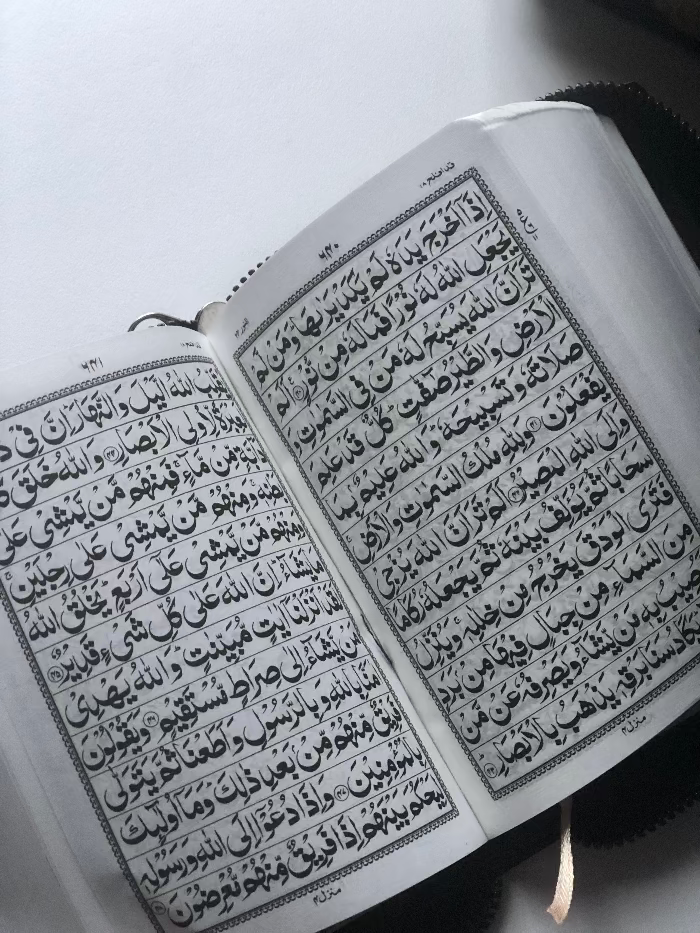 قد افلح ۱۸
۶۴۰
اِذَاۤ اَخْرَجَ یَدَهٗ لَمْ یَكَدْ یَرٰىهَا ؕ وَ مَنْ لَّمْ
یَجْعَلِ اللّٰهُ لَهٗ نُوْرًا فَمَا لَهٗ مِنْ نُّوْرٍ ﴿۴۰﴾ اَلَمْ
تَرَ اَنَّ اللّٰهَ یُسَبِّحُ لَهٗ مَنْ فِی السَّمٰوٰتِ وَ
الْاَرْضِ وَ الطَّیْرُ صٰٓفّٰتٍ ؕ كُلٌّ قَدْ عَلِمَ
صَلَاتَهٗ وَ تَسْبِیْحَهٗ ؕ وَ اللّٰهُ عَلِیْمٌۢ بِمَا
یَفْعَلُوْنَ ﴿۴۱﴾ وَ لِلّٰهِ مُلْكُ السَّمٰوٰتِ وَ الْاَرْضِ ۚ
وَ اِلَى اللّٰهِ الْمَصِیْرُ ﴿۴۲﴾ اَلَمْ تَرَ اَنَّ اللّٰهَ یُزْجِیْ
سَحَابًا ثُمَّ یُؤَلِّفُ بَیْنَهٗ ثُمَّ یَجْعَلُهٗ رُكَامًا
فَتَرَى الْوَدْقَ یَخْرُجُ مِنْ خِلٰلِهٖ ۚ وَ یُنَزِّلُ
مِنَ السَّمَآءِ مِنْ جِبَالٍ فِیْهَا مِنْۢ بَرَدٍ
بِهٖ مَنْ یَّشَآءُ وَ یَصْرِفُهٗ عَنْ مَّنْ
سَنَا بَرْقِهٖ یَذْهَبُ بِالْاَبْصَارِ ﴿۴۳﴾
منزل ۴
۶۴۱
یُقَلِّبُ اللّٰهُ الَّیْلَ وَ النَّهَارَ ؕ اِنَّ فِیْ
لَعِبْرَةً لِّاُولِی الْاَبْصَارِ ﴿۴۴﴾ وَ اللّٰهُ خَلَقَ
مِّنْ مَّآءٍ ۚ فَمِنْهُمْ مَّنْ یَّمْشِیْ عَلٰى
بَطْنِهٖ ۚ وَ مِنْهُمْ مَّنْ یَّمْشِیْ عَلٰى رِجْلَیْنِ ۚ
وَ مِنْهُمْ مَّنْ یَّمْشِیْ عَلٰۤى اَرْبَعٍ ؕ یَخْلُقُ اللّٰهُ
مَا یَشَآءُ ؕ اِنَّ اللّٰهَ عَلٰى كُلِّ شَیْءٍ قَدِیْرٌ ﴿۴۵﴾
لَقَدْ اَنْزَلْنَاۤ اٰیٰتٍ مُّبَیِّنٰتٍ ؕ وَ اللّٰهُ یَهْدِیْ
مَنْ یَّشَآءُ اِلٰى صِرَاطٍ مُّسْتَقِیْمٍ ﴿۴۶﴾ وَ یَقُوْلُوْنَ
اٰمَنَّا بِاللّٰهِ وَ بِالرَّسُوْلِ وَ اَطَعْنَا ثُمَّ یَتَوَلّٰى
فَرِیْقٌ مِّنْهُمْ مِّنْۢ بَعْدِ ذٰلِكَ ؕ وَ مَاۤ اُولٰٓىِٕكَ
بِالْمُؤْمِنِیْنَ ﴿۴۷﴾ وَ اِذَا دُعُوْۤا اِلَى اللّٰهِ وَ رَسُوْلِهٖ
لِیَحْكُمَ بَیْنَهُمْ اِذَا فَرِیْقٌ مِّنْهُمْ مُّعْرِضُوْنَ ﴿۴۸﴾
منزل ۴